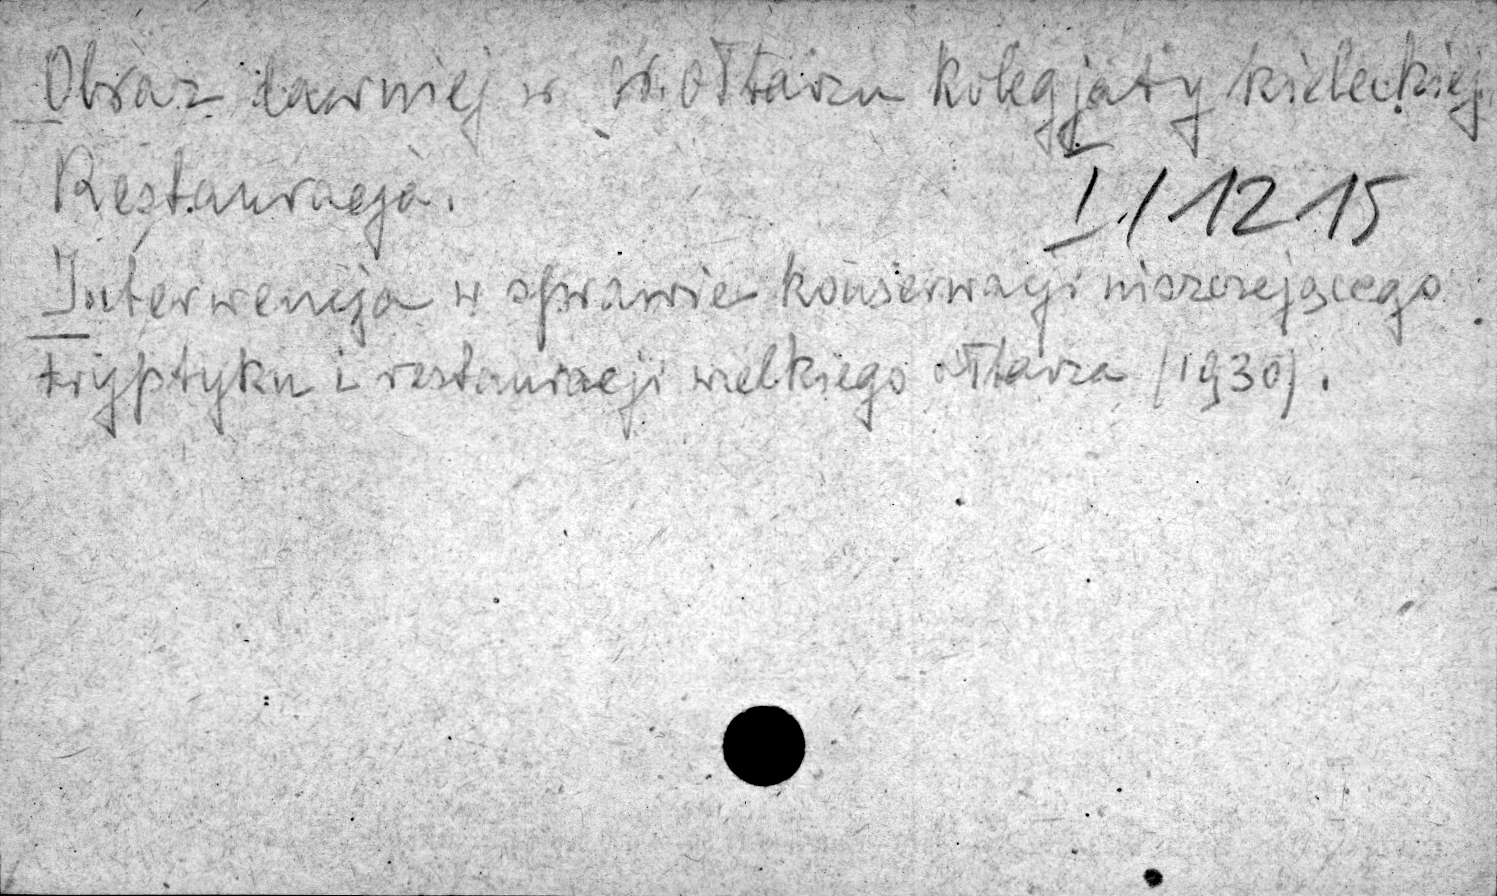 Obraz dawniej w w. ołtarzu kolegjaty kieleckiej.
Restauracja.
I/1215
Interwencja w sprawie konserwacji niszczejącego
tryptyku i restauracji wielkiego ołtarza (1930).